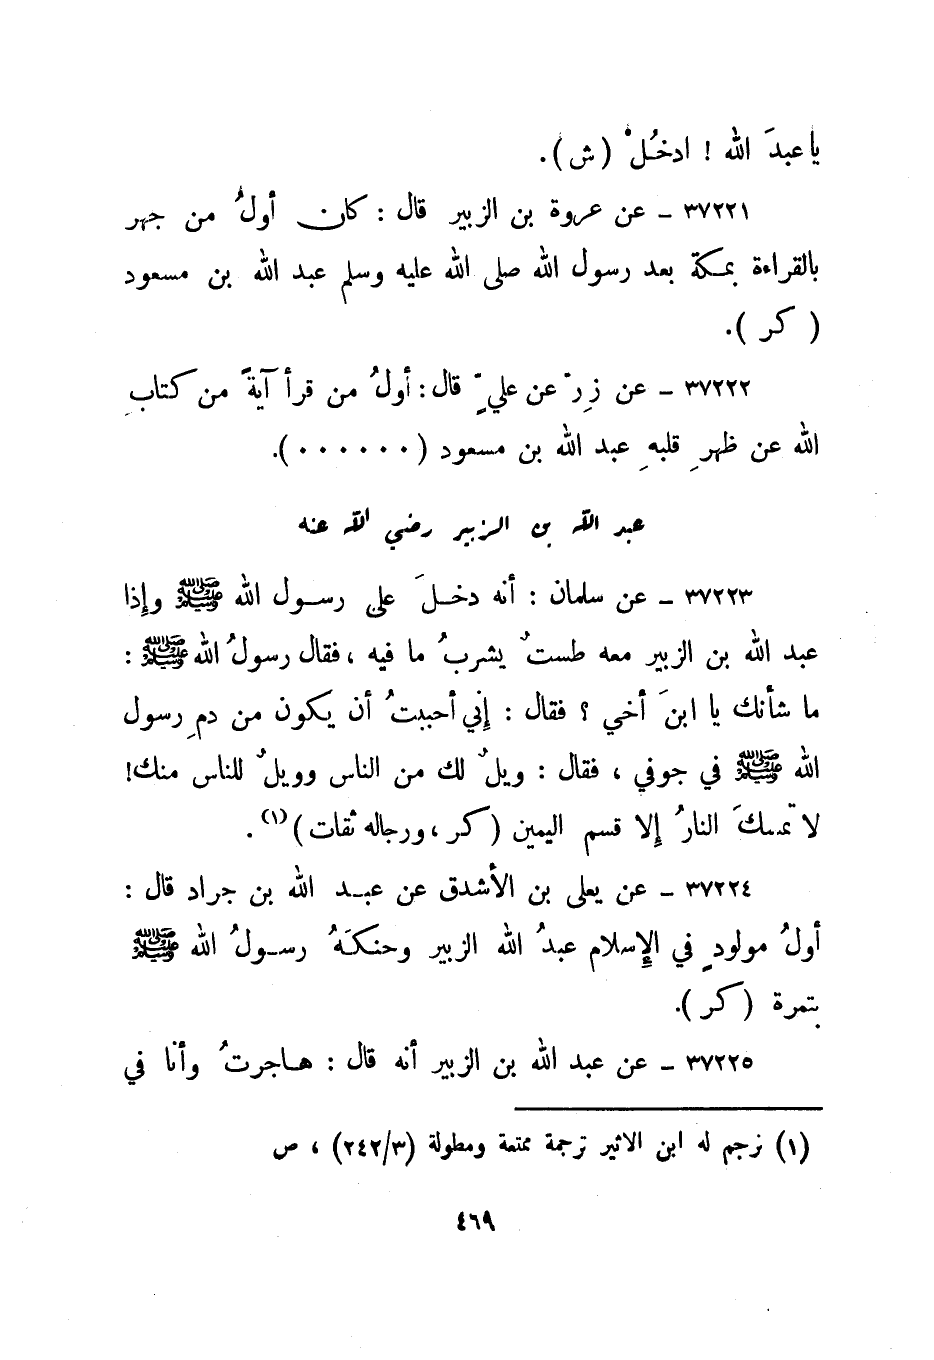 يا عبدَ الله ! ادخُلْ (ش).
٣٧٢٢١ ـ عن عروة بن الزبير قال : كان أولُ من جهر
بالقراءة بمكة بعد رسول الله صلى الله عليه وسلم عبد الله بن مسعود
( كر ).
٣٧٢٢٢ ـ عن زِرّ عن عليٍّ قال : أولُ من قرأ آيةً من كتابِ
الله عن ظهرِ قلبهِ عبد الله بن مسعود (٠٠٠٠٠٠).
عبد الله بن الزبير رضي الله عنه
٣٧٢٢٣ ـ عن سلمان : أنه دخلَ على رسول الله ﷺ وإذا
عبد الله بن الزبير معه طستٌ يشربُ ما فيه ، فقال رسولُ الله ﷺ :
ما شأنك يا ابنَ أخي ؟ فقال : إني أحببتُ أن يكون من دمِ رسول
الله ﷺ في جوفي ، فقال : ويلٌ لك من الناس وويلٌ للناس منك!
لا تمسكَ النارُ إلا قسم اليمين (كر ، ورجاله ثقات)(١) .
٣٧٢٢٤ ـ عن يعلى بن الأشدق عن عبد الله بن جراد قال :
أولُ مولودٍ في الإسلام عبدُ الله الزبير وحنكهُ رسولُ الله ﷺ
بتمرة (كر).
٣٧٢٢٥ ـ عن عبد الله بن الزبير أنه قال : هاجرتُ وأنا في
(١) ترجم له ابن الاثير ترجمة ممتعة ومطولة (٢٤٢/٣) ، ص
٤٦٩